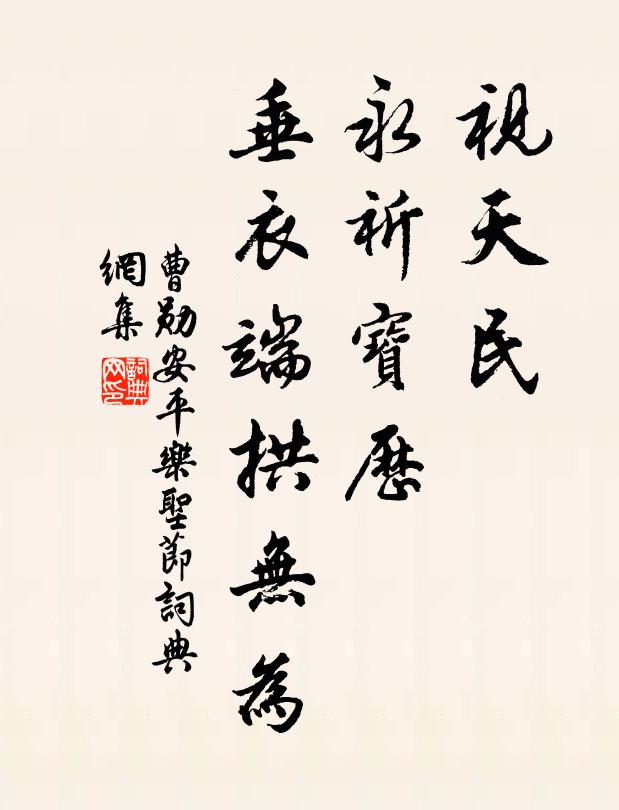 視天民
永祈寶歷
垂衣端拱無為
曹勛安平樂聖節詞典
網集
詞典
網印